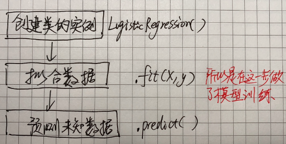 创建类的实例 LogisticRegression()
拟合数据 .fit(X,y) 所以是在这一步做
了模型训练
预测未知数据 .predict()